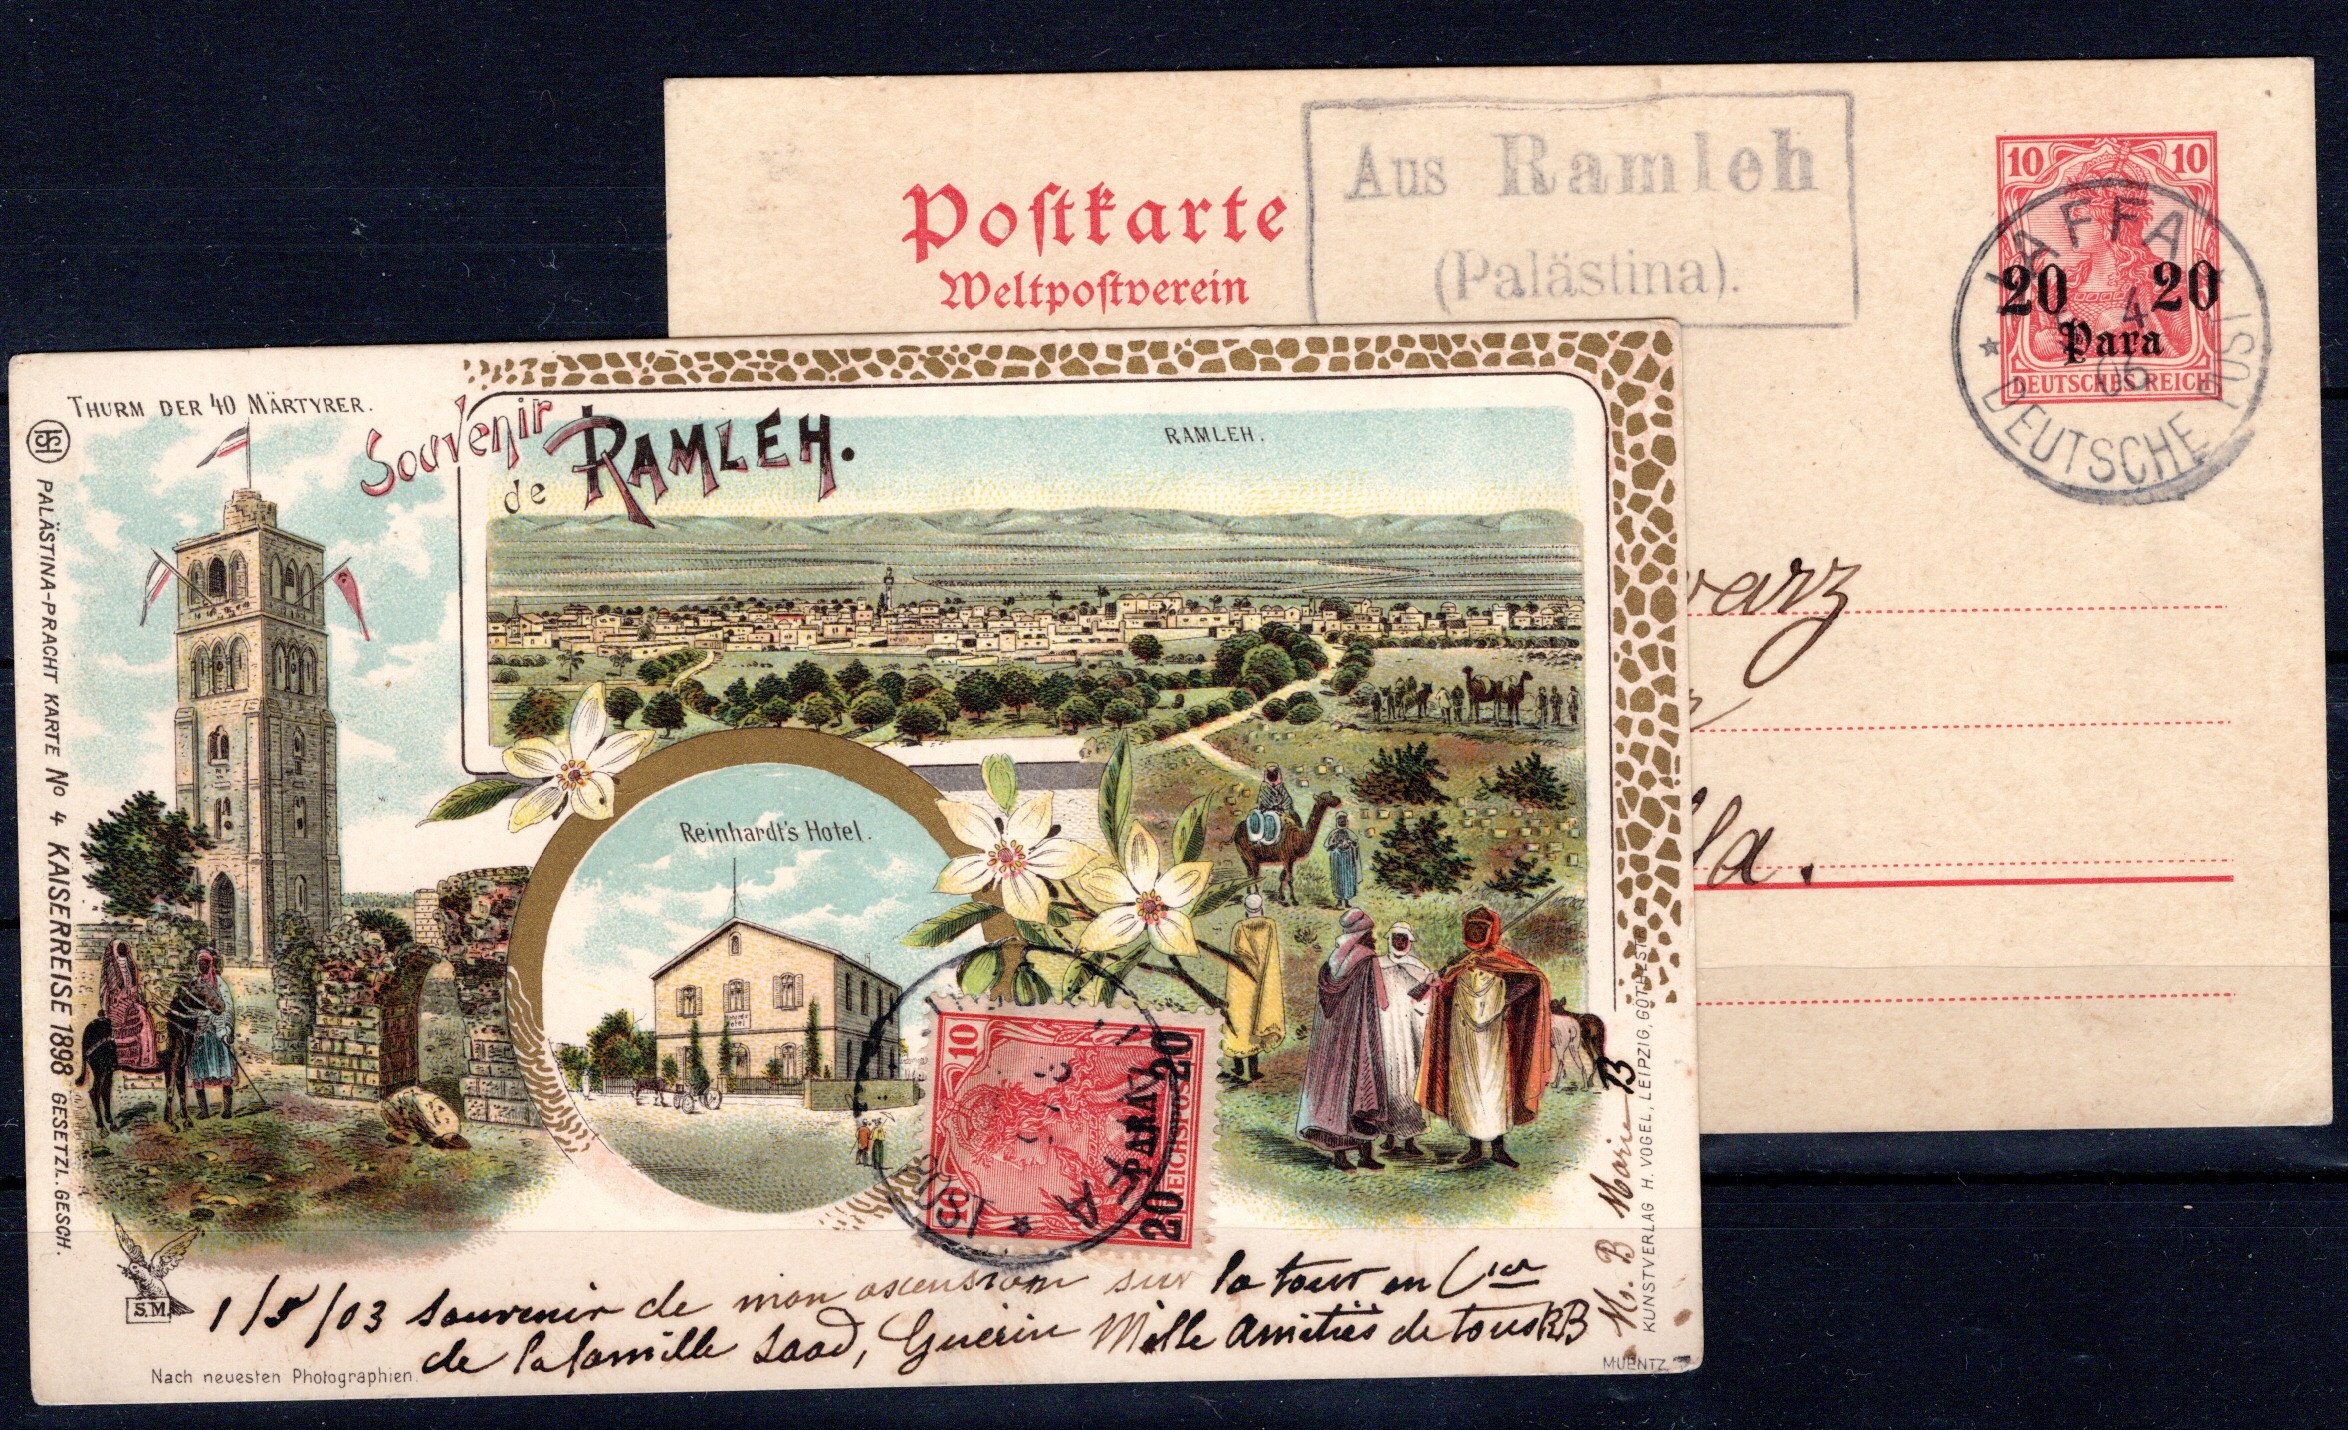 Aus Ramleh
(Palästina).
Postkarte
Weltpostverein
10 10
20 20
Para
DEUTSCHES REICH
JAFFA
4
06
DEUTSCHE POST
THURM DER 40 MÄRTYRER.
Souvenir
de RAMLEH.
RAMLEH.
PALÄSTINA-PRACHT KARTE No 4 KAISERREISE 1898 GESETZL. GESCH.
Reinhardt's Hotel.
Hotel
10
20 PARA 20
REICHSPOST
S.M.
1/5/03 Souvenir de mon ascension sur la tour en Cie
de la famille Saad, Guerin Mille Amitiés de tous
Marie B
KUNSTVERLAG H. VOGEL, LEIPZIG,
Nach neuesten Photographien.
MUENTZ